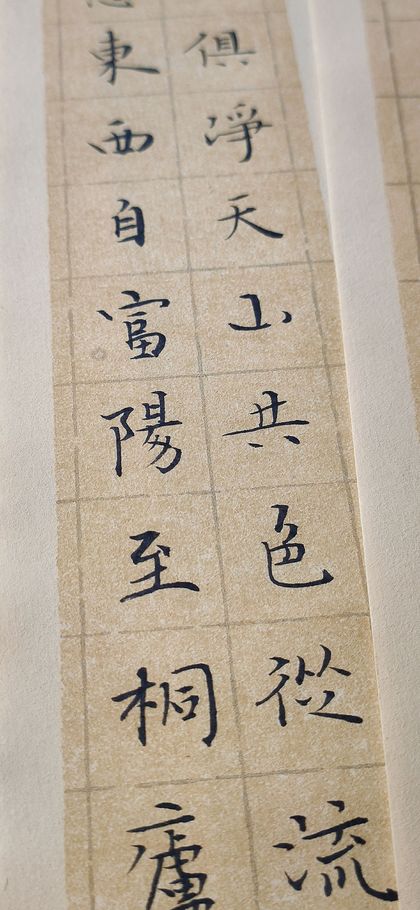 俱淨天山共色從流
東西自富陽至桐廬